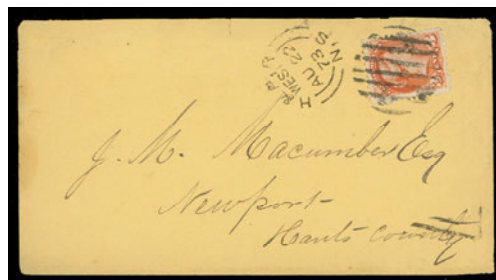 WEST
AU 22
73
N.S
J. M. Macumber Esq
Newport
Hants County